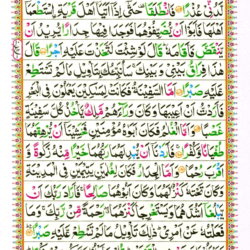 لَّدُنِّيْ عُذْرًا ۝ فَانْطَلَقَا حَتّٰۤى اِذَاۤ اَتَيَاۤ اَهْلَ قَرْيَةِ اِ۟سْتَطْعَمَاۤ
اَهْلَهَا فَاَبَوْا اَنْ يُّضَيِّفُوْهُمَا فَوَجَدَا فِيْهَا جِدَارًا يُّرِيْدُ اَنْ
يَّنْقَضَّ فَاَقَامَهٗ قَالَ لَوْ شِئْتَ لَتَّخَذْتَ عَلَيْهِ اَجْرًا ۝ قَالَ
هٰذَا فِرَاقُ بَيْنِيْ وَبَيْنِكَ سَاُنَبِّئُكَ بِتَاْوِيْلِ مَا لَمْ تَسْتَطِعْ
عَّلَيْهِ صَبْرًا ۝ اَمَّا السَّفِيْنَةُ فَكَانَتْ لِمَسٰكِيْنَ يَعْمَلُوْنَ فِي الْبَحْرِ
فَاَرَدْتُّ اَنْ اَعِيْبَهَا وَكَانَ وَرَآءَهُمْ مَّلِكٌ يَّاْخُذُ كُلَّ سَفِيْنَةٍ
غَصْبًا ۝ وَاَمَّا الْغُلٰمُ فَكَانَ اَبَوٰهُ مُؤْمِنَيْنِ فَخَشِيْنَاۤ اَنْ يُّرْهِقَهُمَا
طُغْيَانًا وَّكُفْرًا ۝ فَاَرَدْنَاۤ اَنْ يُّبْدِلَهُمَا رَبُّهُمَا خَيْرًا مِّنْهُ زَكٰوةً وَّ
اَقْرَبَ رُحْمًا ۝ وَاَمَّا الْجِدَارُ فَكَانَ لِغُلٰمَيْنِ يَتِيْمَيْنِ فِي الْمَدِيْنَةِ
وَكَانَ تَحْتَهٗ كَنْزٌ لَّهُمَا وَكَانَ اَبُوْهُمَا صَالِحًا فَاَرَادَ رَبُّكَ اَنْ
يَّبْلُغَاۤ اَشُدَّهُمَا وَيَسْتَخْرِجَا كَنْزَهُمَا رَحْمَةً مِّنْ رَّبِّكَ وَمَا
فَعَلْتُهٗ عَنْ اَمْرِيْ ذٰلِكَ تَاْوِيْلُ مَا لَمْ تَسْطِعْ عَّلَيْهِ صَبْرًا